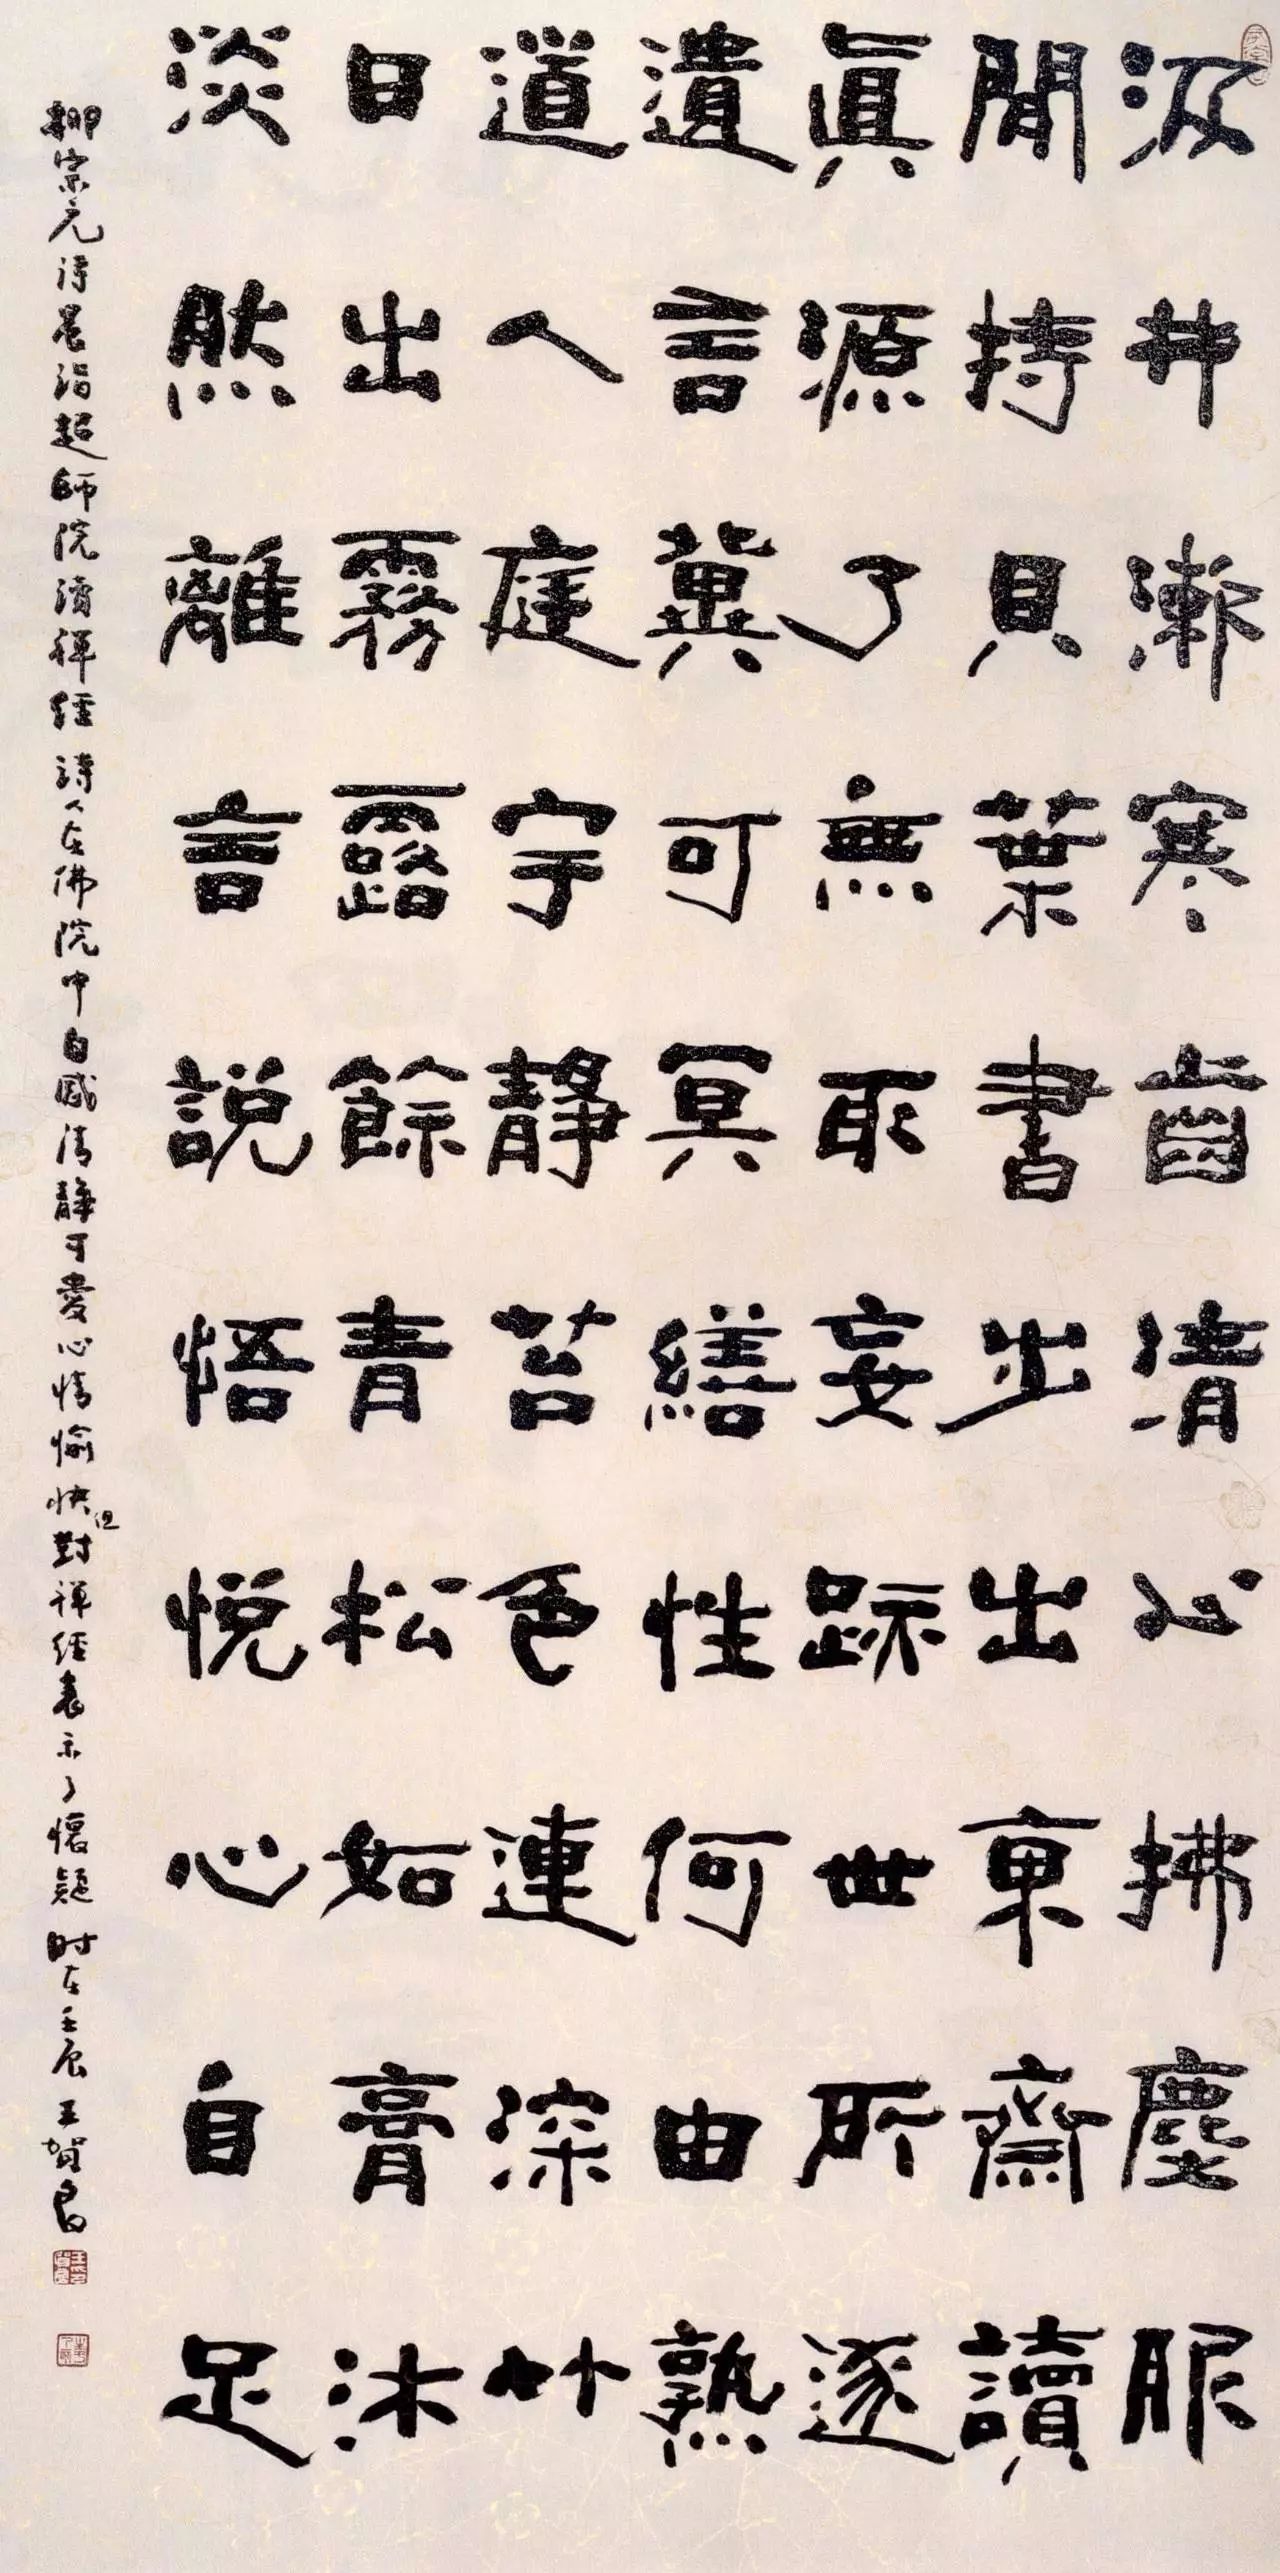 汲井漱寒齒清心拂塵服
閒持貝葉書步出東齋讀
眞源了無取妄跡世所逐
遺言冀可冥繕性何由熟
道人庭宇靜苔色連深竹
日出霧露餘青松如膏沐
淡然離言說悟悅心自足
柳宗元詩晨詣超師院讀禪經 詩人在佛院中自感清靜可愛心情愉快但對禪經表示了懷疑 時在壬辰 王賀良